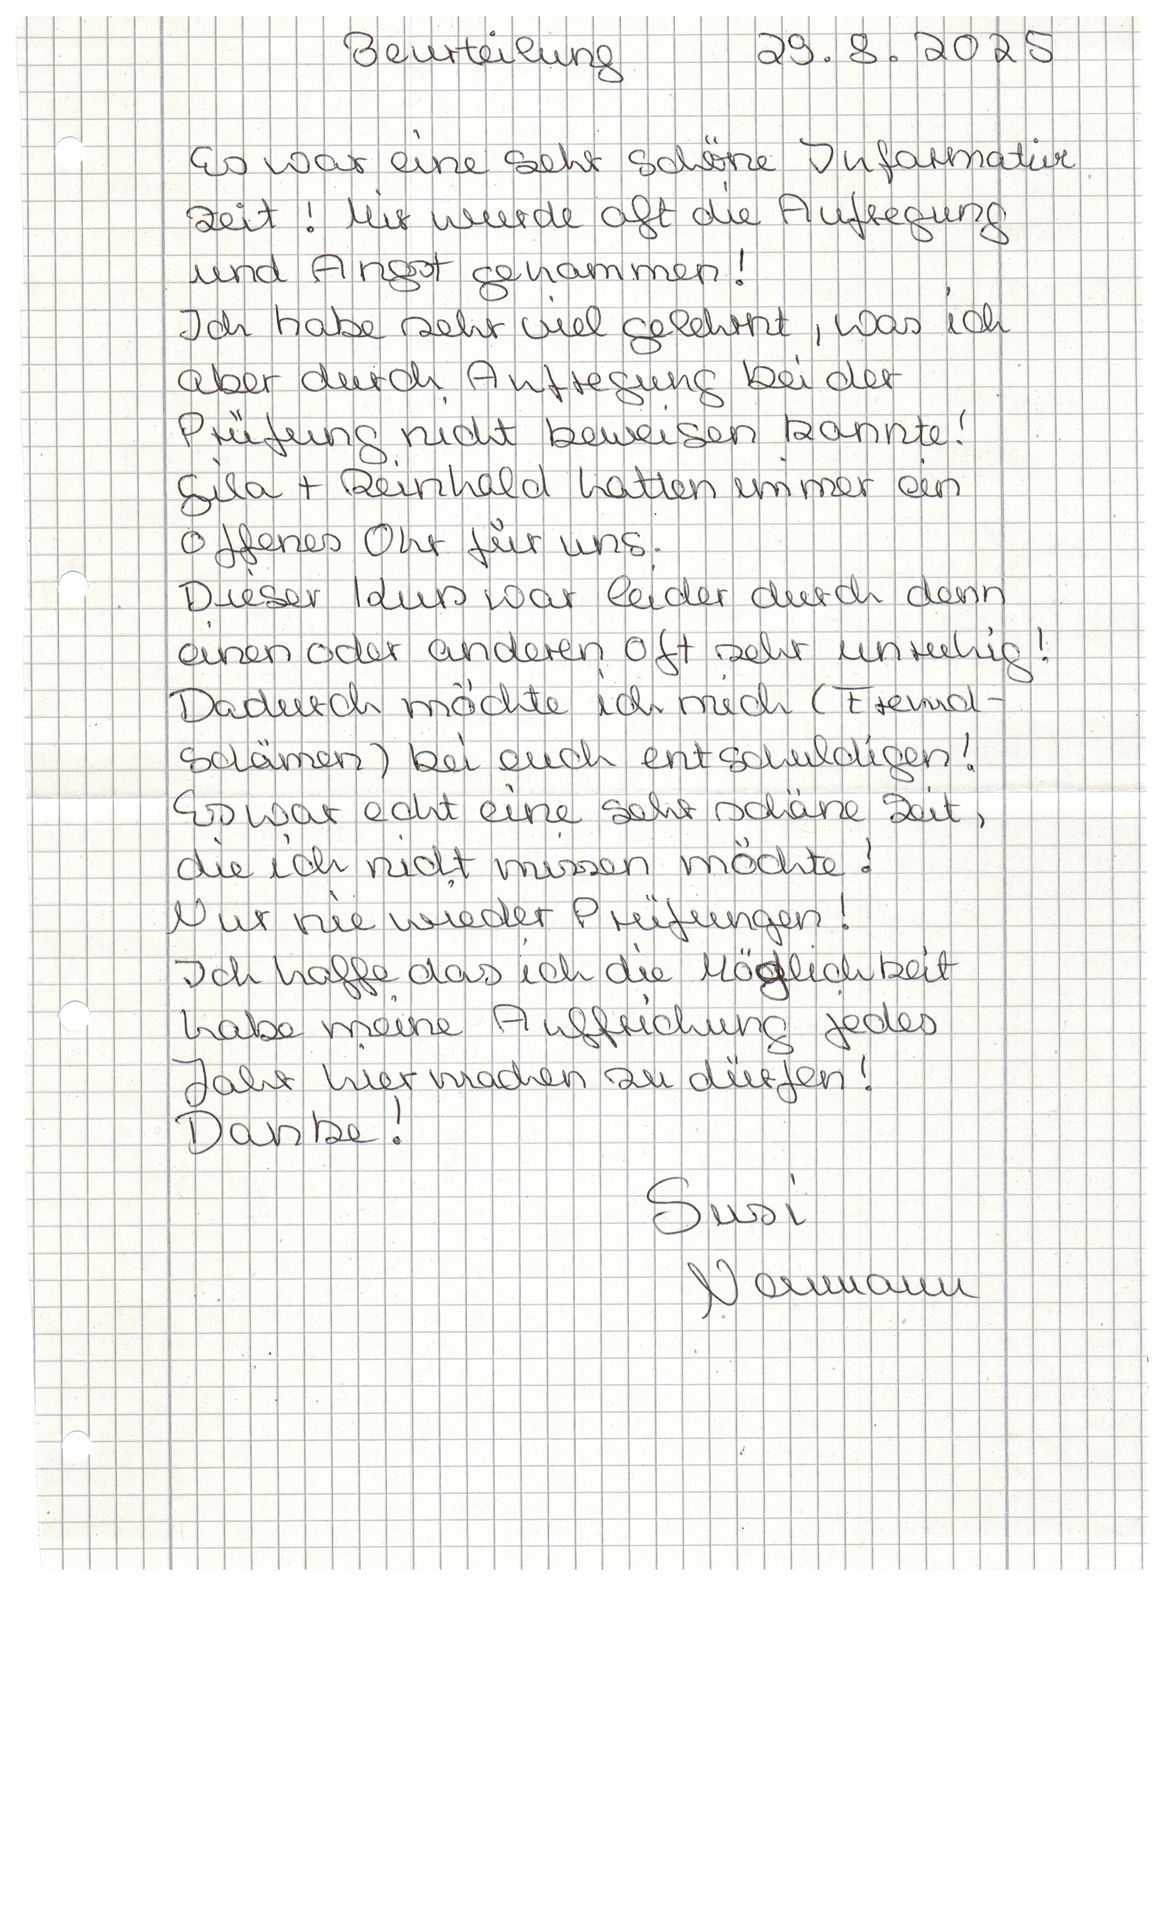 Beurteilung 29.8.2025
Es war eine sehr schöne Informative
Zeit! Mir wurde oft die Aufregung
und Angst genommen!
Ich habe sehr viel gelehrnt, was ich
aber durch Aufregung bei der
Prüfung nicht beweisen konnte!
Gila + Reinhold hatten immer ein
offenes Ohr für uns.
Dieser Kurs war leider durch denn
einen oder anderen oft sehr unruhig!
Dadurch möchte ich mich (Fremd-
schämen) bei euch entschuldigen!
Es war echt eine sehr schöne Zeit,
die ich nicht missen möchte!
Nur nie wieder Prüfungen!
Ich hoffe das ich die Möglichkeit
habe meine Auffrichung jedes
Jahr hier machen zu dürfen!
Danke!
Susi